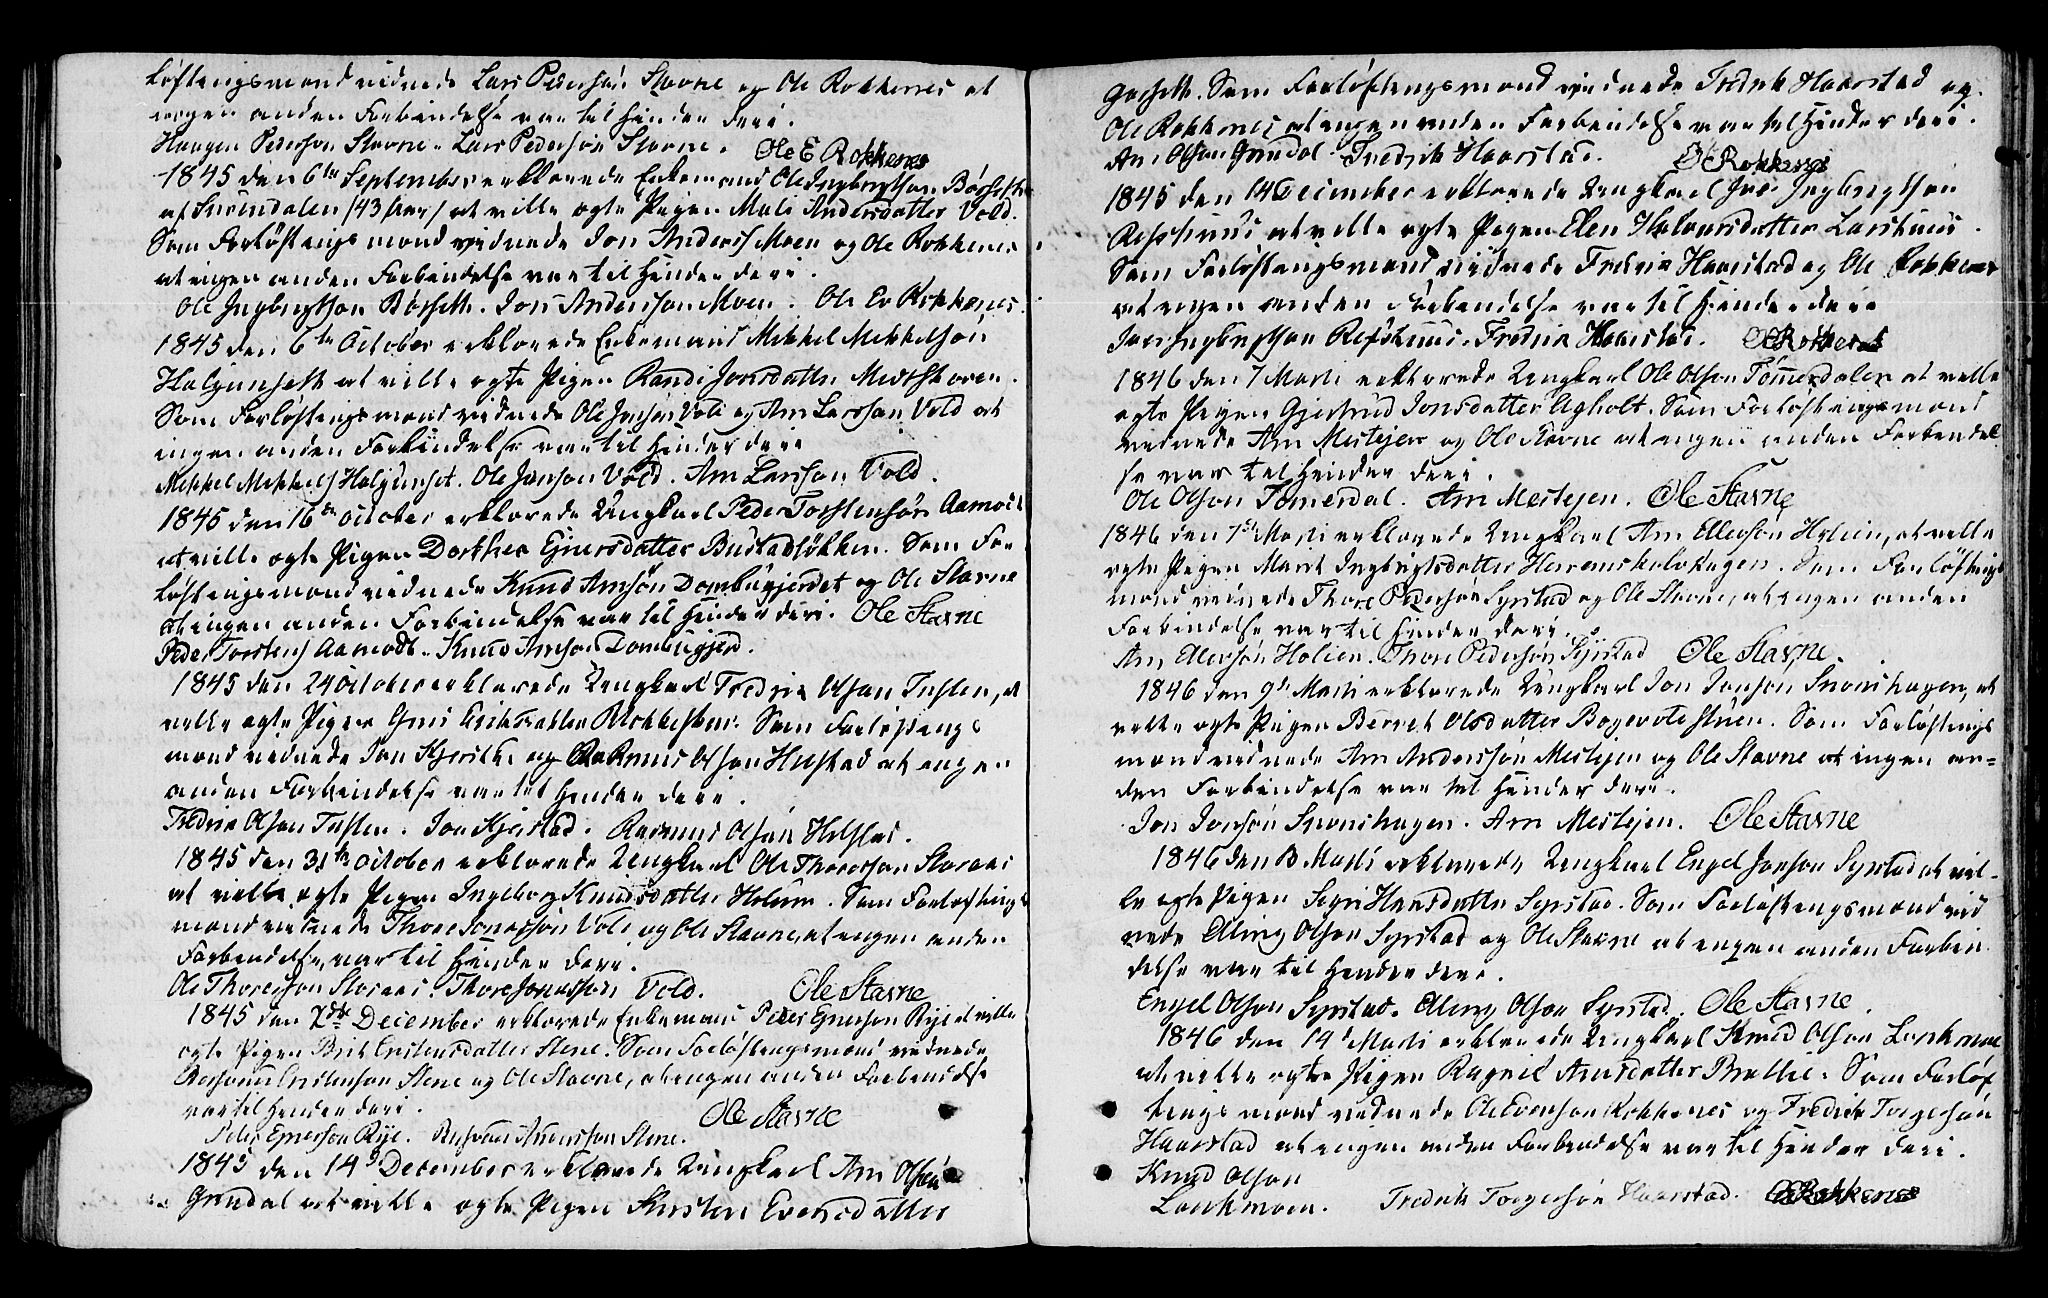 løftningsmænd vidnede Lars Pedersøn Stavne og Ole Rokkenes at
ingen anden Forbindelse var til Hinder deri.
Haagen Pederson Stavne. Lars Pedersøn Stavne. Ole E Rokkenes
1845 den 6te September erklærede Enkemand Ole Ingbrigtson
af Surendalen /43 Aar/ at ville ægte Pigen Mali Andersdatter Vold.
Som Forløftningsmænd vidnede Jon Anders Moen og Ole Rokkenes
at ingen anden Forbindelse var til Hinder deri.
Ole Ingbrigtson Børseth. Jon Andersson Moen. Ole Ev Rokkenes.
1845 den 6te October erklærede Enkemand Mikkel Mikkelson
Halgunseth at ville ægte Pigen Randi Jonsdatter
Som Forløftningsmænd vidnede Ole Jonson Vold og Arn Larsson Vold at
ingen anden Forbindelse var til Hinder deri
Mikkel Mikkels Halgunset. Ole Jonson Vold. Arn Larsson Vold.
1845 den 16de October erklærede Ungkarl Peder Torstensøn Aamodt
at ville ægte Pigen Dorthea Ejnersdatter Bustadløkken. Som For
løftningsmænd vidnede Knud Arnsøn Dombugjerdet og Ole Stavne
at ingen anden Forbindelse var til Hinder deri. Ole Stavne
Peder Torstens Aamodt. Knud Arnson Dombugjerd.
1845 den 24 October erklærede Ungkarl Fredrik Olson Tusten, at
ville ægte Pigen Eriksdatter Som Forløftnings
mænd vidnede Jon og Rasmus Olson at ingen
anden Forbindelse var til Hinder deri.
Fredrik Olson Tusten. Jon Kjerstad. Rasmus Olson
1845 den 31te October erklærede Ungkarl Ole Thoresson Storaas
at ville ægte Pigen Ingeborg Knudsdatter Holum. Som Forløftnings
mænd vidnede Thore Jonasson Vold og Ole Stavne, at ingen anden
Forbindelse var til Hinder deri.
Ole Thoresson Storaas. Thore Jonasson Vold. Ole Stavne
1845 den 2den December erklærede Enkemand Peder Ejnerson Rye at ville
ægte Pigen Brit Cristensdatter Stene. Som Forløftningsmænd vidnede
Cristenson Stene og Ole Stavne, at ingen anden Forbindelse
var til Hinder deri. Ole Stavne
Peder Ejnerson Rye. Stene.
1845 den 14de December erklærede Ungkarl Arn Olsøn
Grindal at ville ægte Pigen Kirsten Evensdatter
Gorseth. Som Forløftningsmænd vidnede Fredrik Haarstad og
Ole Rokkenes at ingen anden Forbindelse var til Hinder deri.
Arn Olson Grindal. Fredrik Haarstad. OERokkenes
1845 den 14 December erklærede Ungkarl Iver Ingbrigtson
Refshuus at ville ægte Pigen Elen Halvorsdatter Larshuus.
Som Forløftningsmænd vidnede Fredrik Haarstad og Ole Rokkenes
at ingen anden Forbindelse var til Hinder deri
Iver Ingbrigtson Refshuus. Fredrik Haarstad. OERokkenes
1846 den 7 Marti erklærede Ungkarl Ole Olson Tømerdalen at ville
ægte Pigen Gjertrud Jonsdatter Agholt. Som Forløftningsmænd
vidnede Arn Meslejen og Ole Stavne at ingen anden Forbindel
se var til Hinder deri.
Ole Olson Tømerdal. Arn Meslejen. Ole Stavne
1846 den 7de Marti erklærede Ungkarl Arn Ellevsøn Holien, at ville
ægte Pigen Marit Ingbrigtsdatter Som Forløftnings
mænd vidnede Thore Pedersøn Syrstad og Ole Stavne, at ingen anden
Forbindelse var til Hinder deri.
Arn Ellevsøn Holien. Thore Pedersøn Syrstad Ole Stavne.
1846 den 9de Marti erklærede Ungkarl Jon Jonson Snoushagen, at
ville ægte Pigen Berret Olsdatter Som Forløftnings
mænd vidnede Arn Andersson Meslejen og Ole Stavne at ingen an=
den Forbindelse var til Hinder deri.
Jon Jonsøn Snoushagen. Arn Meslejen. Ole Stavne
1846 den Marti erklærede Ungkarl Engel Jonson Syrstad at vil-
le ægte Pigen Sigri Hansdatter Syrstad. Som Forløftningsmænd vid
nede Olson Syrstad og Ole Stavne at ingen anden Forbin
delse var til Hinder deri.
Engel Olson Syrstad. Olson Syrstad. Ole Stavne.
1846 den 14de Marti erklærede Ungkarl Knud Olson
at ville ægte Pigen Ragnil Arnsdatter Som Forløf
tnings mænd vidnede Ole Evenson Rokkenes og Fredrik Torgersøn
Haarstad at ingen anden Forbindelse var til Hinder deri.
Knud Olson
Fredrik Torgersøn Haarstad. OERokkenes